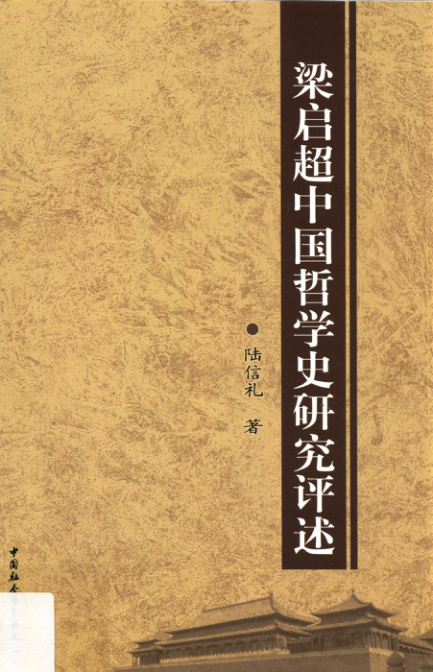 梁启超中国哲学史研究评述
●陆信礼 著
中国社会